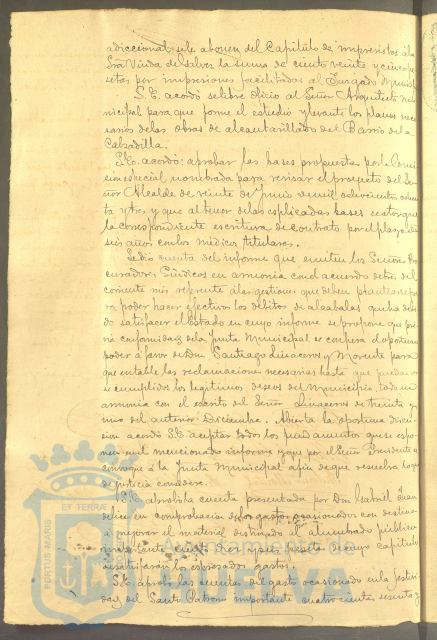 adiccional, se le abonen del Capítulo de imprevistos á la
Sra Viuda de Galvez la suma de ciento veinte y cinco pe
setas por impresiones facilitadas al Juzgado Munici
S.E. acordó se libre oficio al Señor Arquitecto mu
nicipal para que forme el estudio y levante los planos nece
sarios de las obras de alcantarillado del Barrio de la
Calzadilla.
S.E. acordó: aprobar las bases propuestas por la Comi
sión especial nombrada para revisar el proyecto del Se
ñor Alcalde de veinte de Junio de mil ochocientos ochen
ta y tres, y que al tenor de las esplicadas bases se otorgue
la correspondiente escritura de contrato por el plazo de
seis años con los médicos titulares.
Se dio cuenta del informe que emiten los Señores Pro
curadores Síndicos en armonia con el acuerdo de tres del
corriente mes referente á las gestiones que deben plantearse pa
ra poder hacer efectivo los débitos de alcabalas que ha deja
do satisfacer el Estado en cuyo informe se propone que pre
via conformidad de la Junta Municipal se confiera el oportuno
poder á favor de Don Santiago Linaceros y Morente para
que entable las reclamaciones necesarias hasta que quedan
cumplidos los legitimos deseos del Municipio, todo en
armonia con el escrito del Señor Linaceros de treinta y
uno del anterior Diciembre. Abierta la oportuna discu
sion acordó S.E. aceptar todos los fundamentos que se espo
nen en el mencionado informe y que por el Señor Presidente se
convoque á la Junta Municipal afin de que resuelva lo que
de justicia considere.
S.E. aprobó la cuenta presentada por Don Gabriel
en comprobacion de los gastos ocasionados con destino
á mejorar el material destinado al alumbrado público
importante diez pesetas de cuyo capitulo
se satisfarán los espresados gastos.
S.E. aprobó las cuentas del gasto ocasionado en la festivi
dad del Santo Patrono importante cuatrocientas sesenta y
ET TERRÆ
PORTUS MARIS
CUSTODIA
Ayuntamiento de
HUELVA